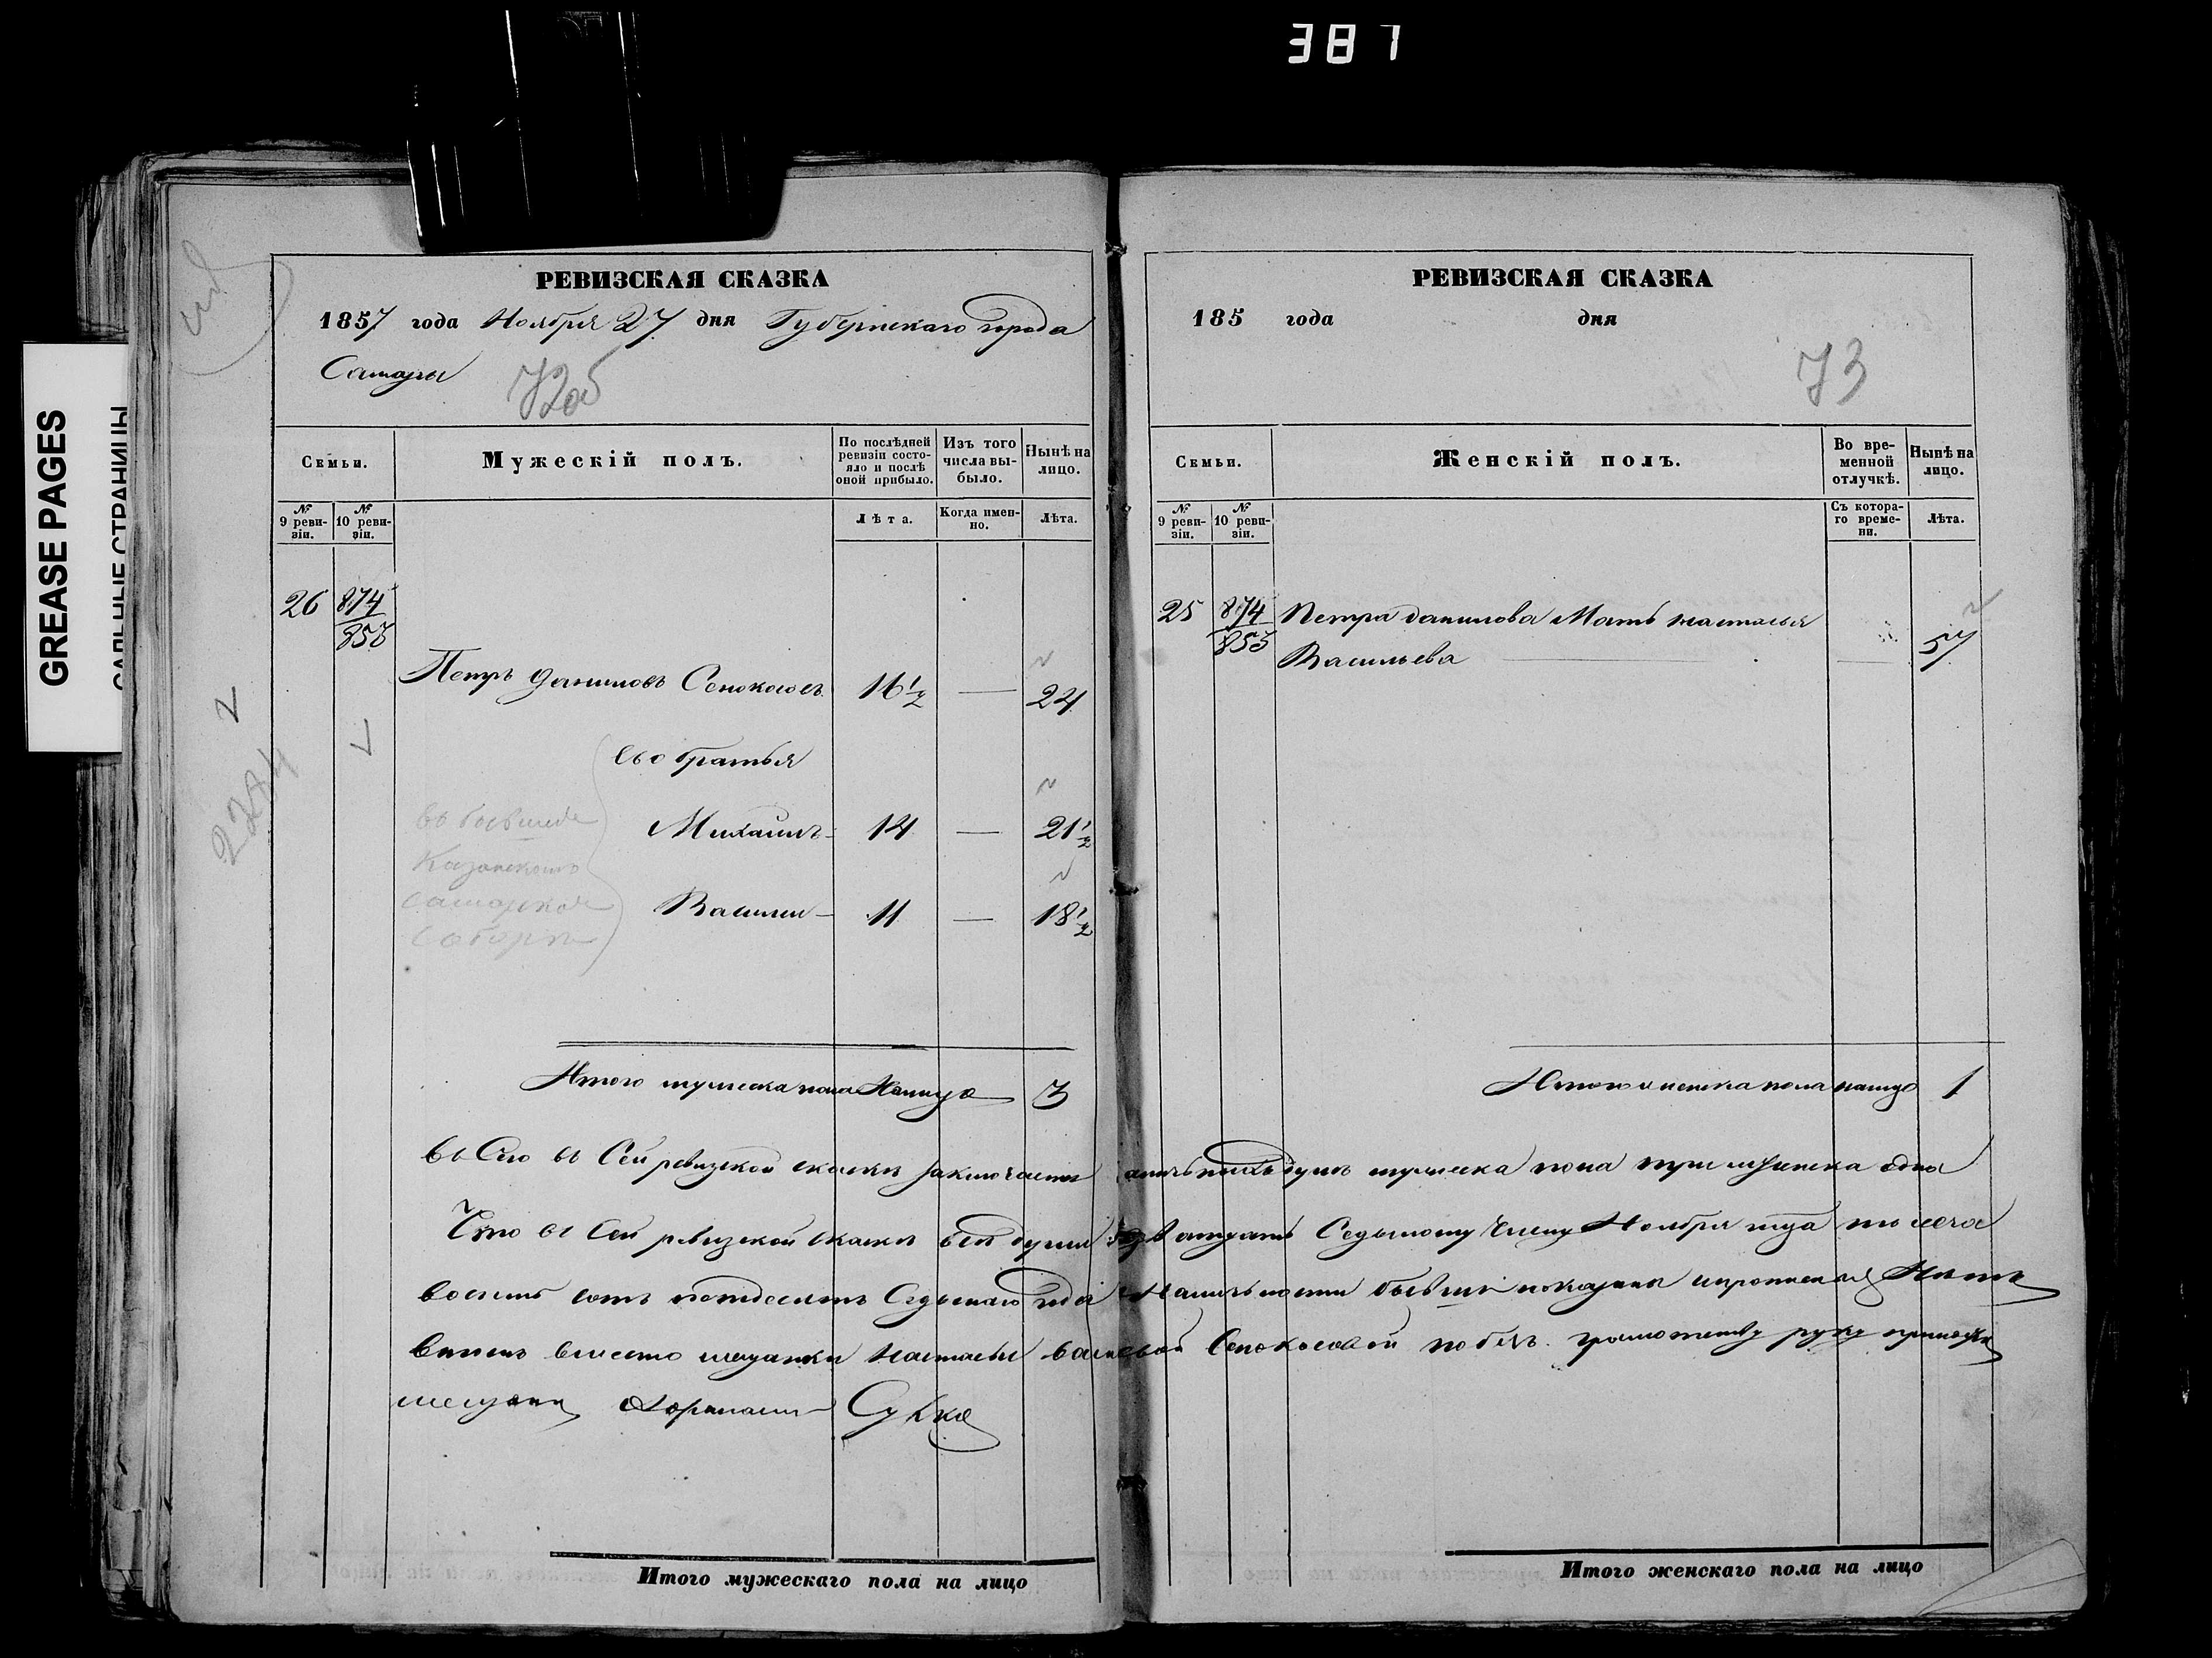 387
GREASE PAGES
САЛЬНЫЕ СТРАНИЦЫ
РЕВИЗСКАЯ СКАЗКА
1857 года Ноября 27 дня Губернскаго города
Самары
72об
Семьи.
Мужескій полъ.
По послѣдней ревизіи состояло и послѣ оной прибыло.
Изъ того числа выбыло.
Нынѣ на лицо.
№ 9 ревизіи.
№ 10 ревизіи.
Лѣта.
Когда именно.
Лѣта.
26 874
855
Петръ Даниловъ Сенокосовъ 16½ — 24
Его братья
Михаилъ 14 — 21½
Василий 11 — 18½
Казанскомъ
Самарском
Соборе
2284
Итого мужеска пола Налицо 3
РЕВИЗСКАЯ СКАЗКА
185 года дня
73
Семьи.
Женскій полъ.
Во временной отлучкѣ.
Нынѣ на лицо.
№ 9 ревизіи.
№ 10 ревизіи.
Съ котораго времени.
Лѣта.
25 874
855
Петра Данилова Мать Настасья
Васильева — 57
Итого женска пола налицо 1
Всего въ Сей ревизской сказки заключается наличныхъ душъ мужеска пола три женска одна
Что въ Сей ревизской сказки все души Двадцать Седьмому числу Ноября тысеча
восемь сотъ петдесять Седьмаго года Наличности бывши показаны и прописных Нетъ
вместо мещанки Настасьи Васильевой Сенокосовой руку приложил
мещанин
Итого мужескаго пола на лицо
Итого женскаго пола на лицо